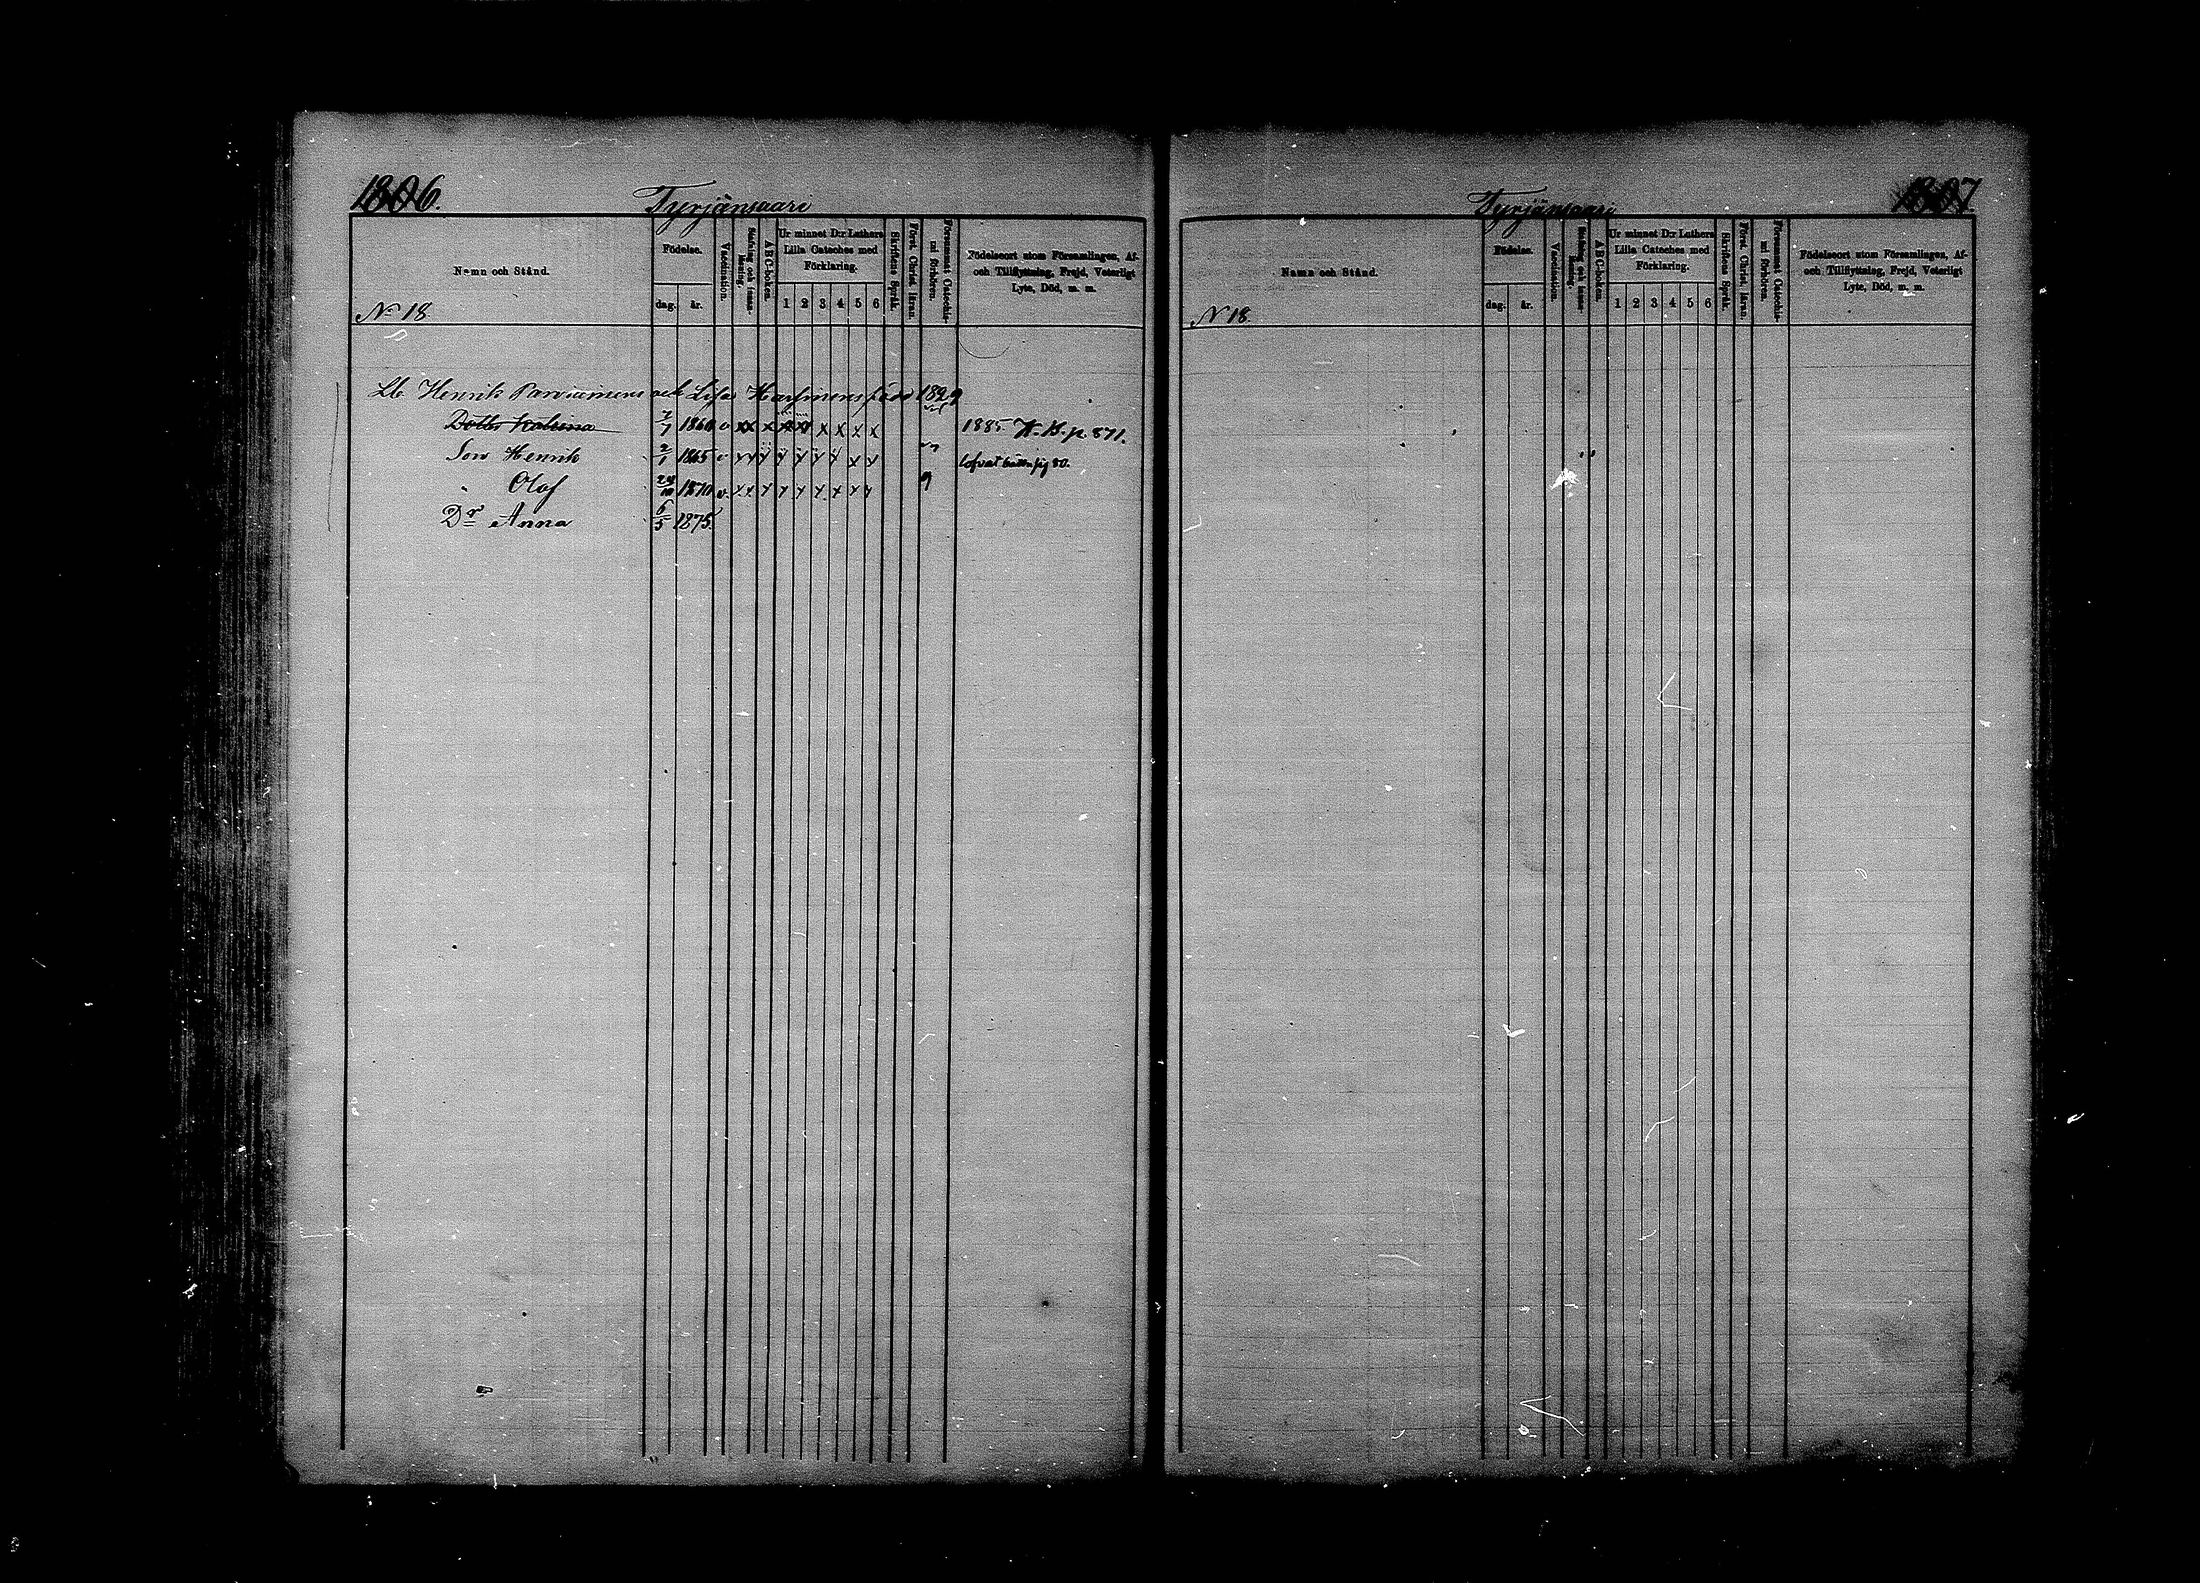 1806.
Tyrjänsaari
Namn och Stånd.
No 18
Födelse.
dag.
år.
Vaccination.
Stafning och innan-läsning.
ABC-boken.
Ur minnet D:r Luthers
Lilla Cateches med
Förklaring.
1 2 3 4 5 6
Skriftens Språk.
Först. Christ. läran.
Försummat Catechis-
mi förhören.
Födelseort utom Församlingen, Af-
och Tillflyttning, Frejd, Veterligt
Lyte, Död, m. m.
Lb. Henrik Parviainens och Lisa
Dottr Katrina 1860 v xx x x x x x x x 1885 p. 871.
Son Henrik 2/1 1865 v x x x x x x x x x
" Olof 1870 v. x x x x x x x x x
Dr Anna 6/5 1875.
1807.
Tyrjänsaari
Namn och Stånd.
N 18.
Födelse.
dag.
år.
Vaccination.
Stafning och innan-läsning.
ABC-boken.
Ur minnet D:r Luthers
Lilla Cateches med
Förklaring.
1 2 3 4 5 6
Skriftens Språk.
Först. Christ. läran.
Försummat Catechis-
mi förhören.
Födelseort utom Församlingen, Af-
och Tillflyttning, Frejd, Veterligt
Lyte, Död, m. m.